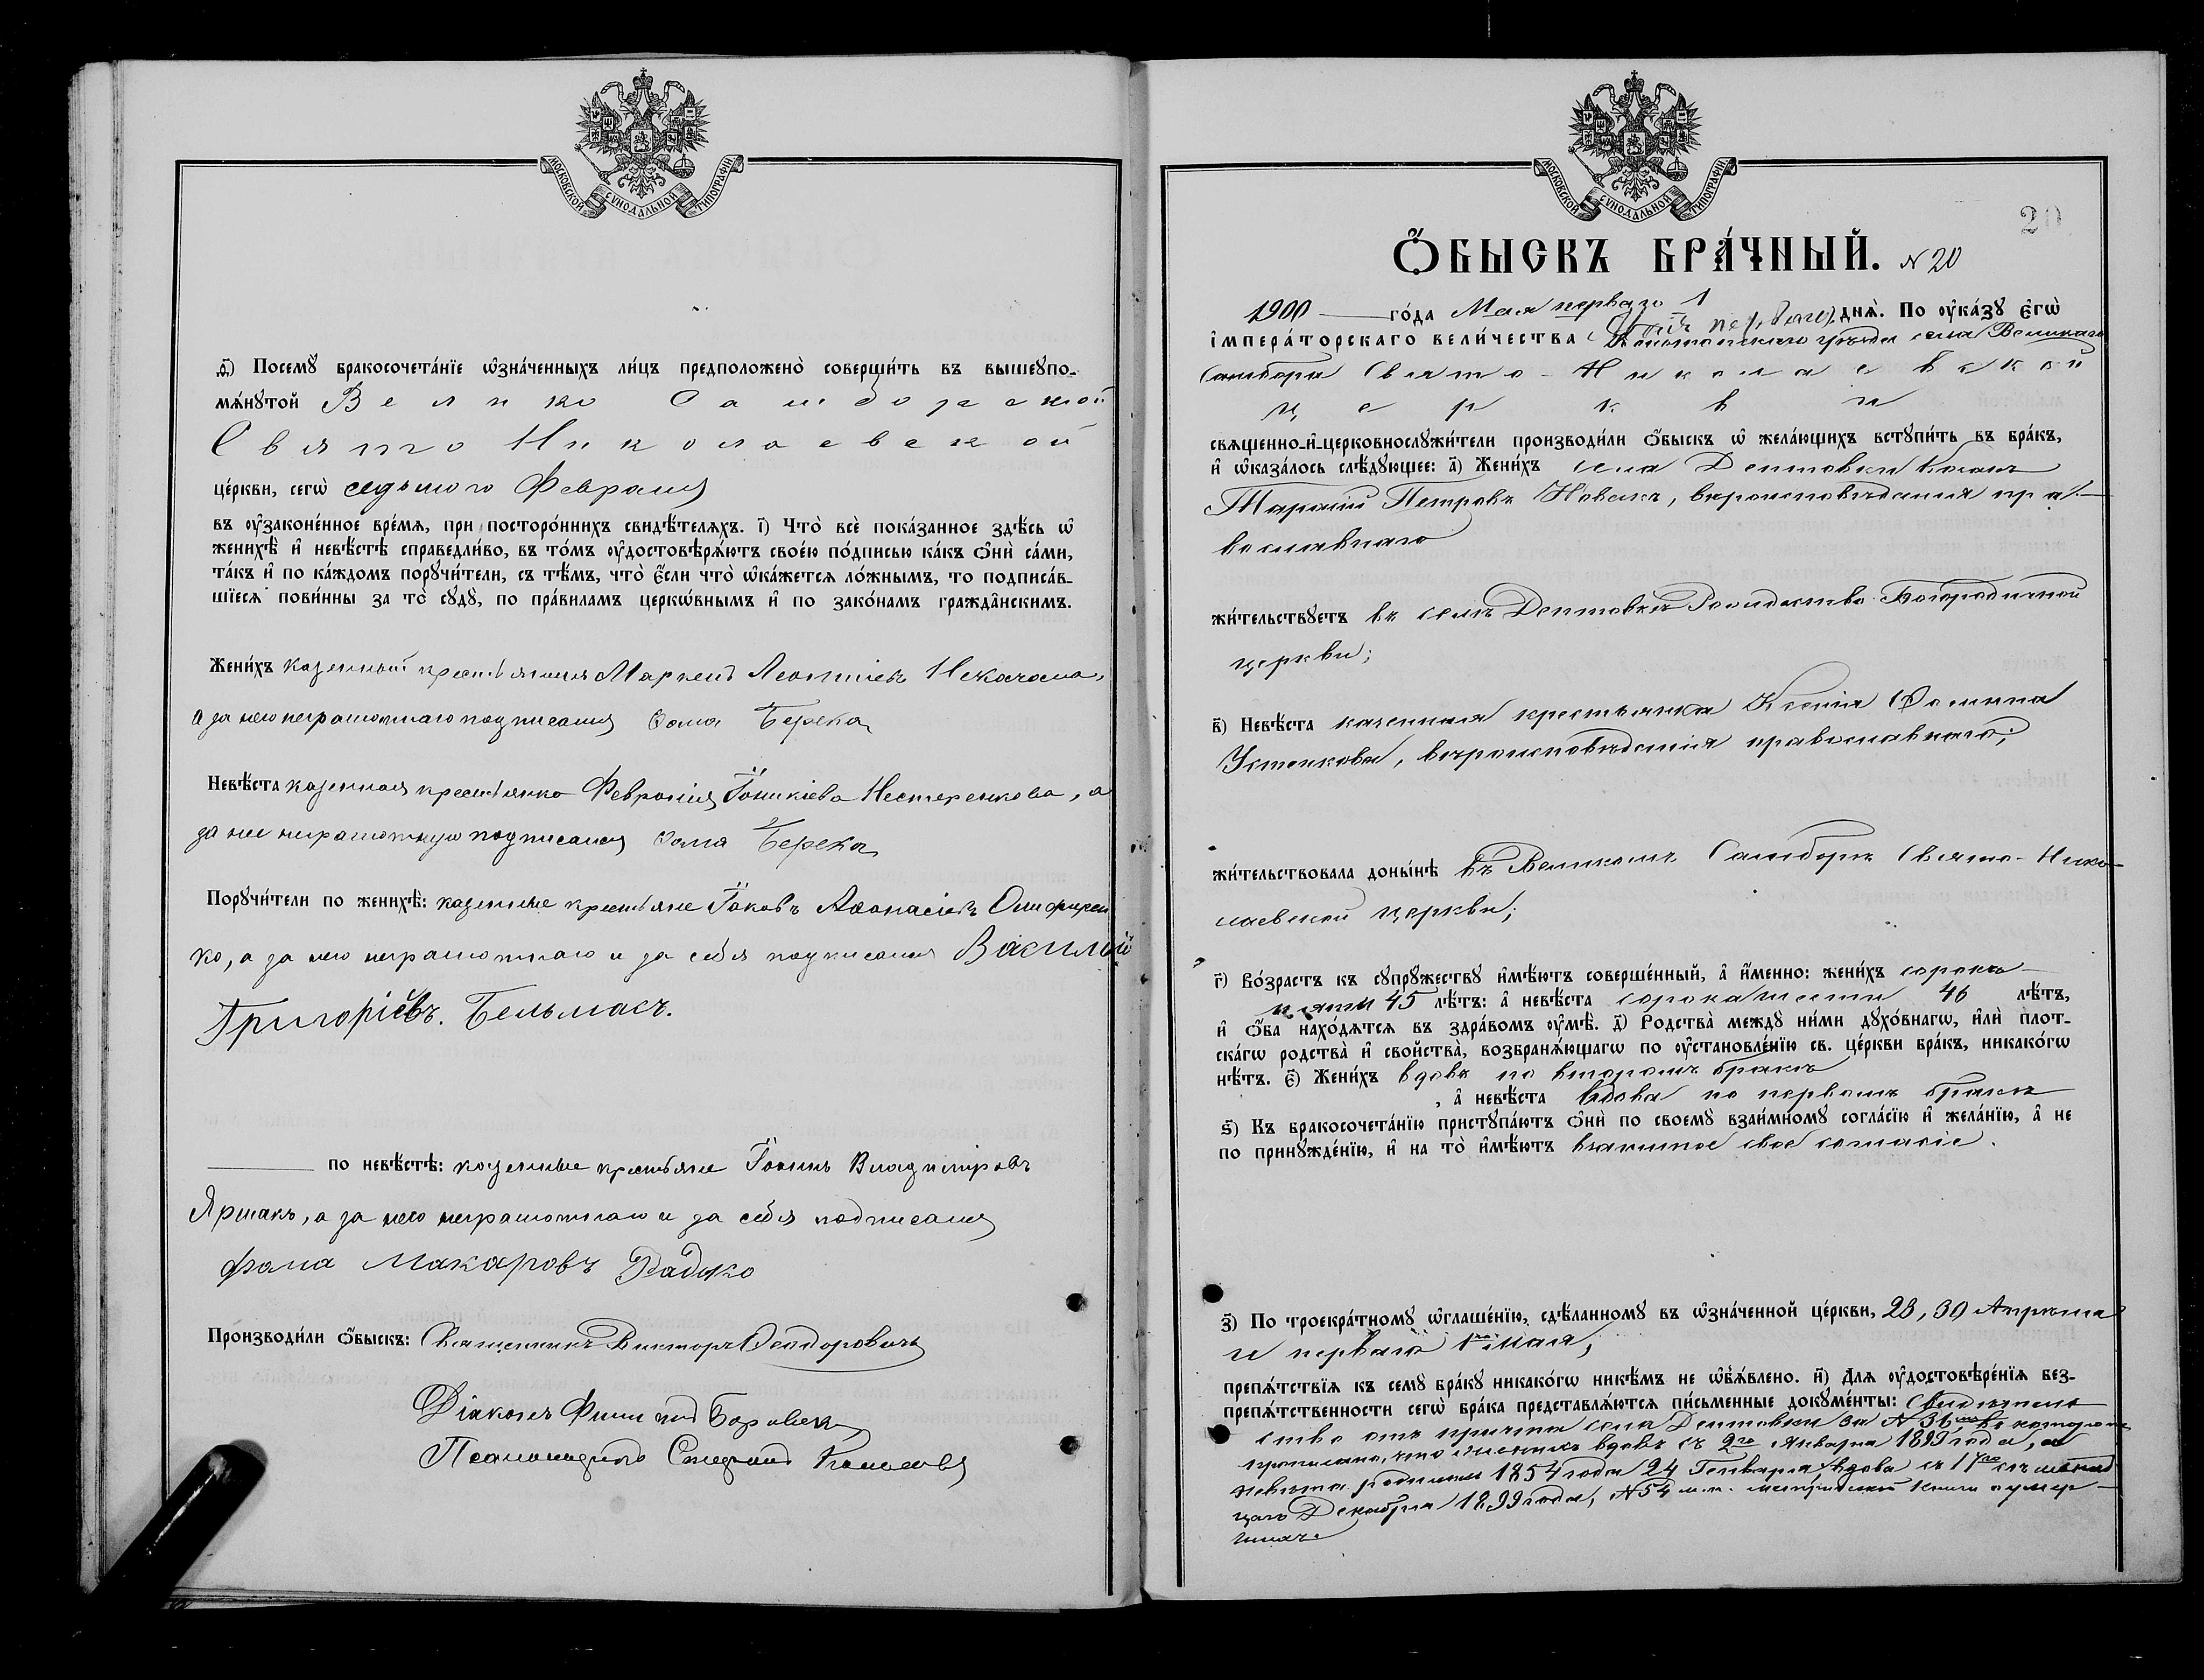 МОСКОВСКОЙ СУНОДАЛЬНОЙ ТИПОГРАФІИ
Ѳ҃) Посемꙋ̀ бракосочета́нїе ѡ҆зна́ченныхъ ли́цъ предположено̀ соверши́ть въ вышеꙋпо-
мѧ́нꙋтой Велико Самборской
Свято Николаевской
це́ркви, сегѡ̀ седьмого Февраля
въ ᲂу҆законе́нное вре́мѧ, при посторо́ннихъ свидѣ́телѧхъ. І҃) Что̀ всѐ пока́занное здѣ́сь ѡ҆
женихѣ̀ и҆ невѣ́стѣ справедли́во, въ то́мъ ᲂу҆достовѣрѧ́ютъ свое́ю по́дписью ка́къ ѻ҆нѝ са́ми,
та́къ и҆ по ка́ждомъ порꙋчи́тели, съ тѣ́мъ, что̀ є҆́сли что̀ ѡ҆ка́жетсѧ ло́жнымъ, то подписа́в-
шїесѧ пови́нны за то̀ сꙋдꙋ̀, по пра́виламъ церкѡ́внымъ и҆ по зако́намъ гражда̑нскимъ.
Жени́хъ казенный крестьянинъ Маркелъ Леонтіевъ Некачало,
а за него неграмотнаго подписался Ѳома Берека
Невѣ́ста казенная крестьянка Февронія Іоникіева Нестеренкова, а
за нее неграмотную подписался Ѳома Берека
Порꙋчи́тели по женихѣ̀: казенные крестьяне Іаковъ Аѳанасіевъ Онофрієн
ко, а за него неграмотнаго и за себя подписался Василій
Григоріевъ. Бельмасъ.
по невѣ́стѣ: казенные крестьяне Іоаннъ Владиміровъ
Яршакъ, а за него неграмотнаго и за себя подписался
Фома Макаровъ Радько
Производи́ли ѻ҆́быскъ: Священникъ Викторъ Ѳеодоровичъ
Діаконъ Филиппъ
Псаломщикъ
МОСКОВСКОЙ СУНОДАЛЬНОЙ ТИПОГРАФІИ
20
Ѻ҆́БЫСКЪ БРА́ЧНЫЙ. N 20
1900 го́да Мая перваго 1 днѧ̀. По ᲂу҆ка́зꙋ є҆гѡ̀
і҆мпера́торскаго вели́чества Конотопскаго уѣзда села Великаго
Самбора Свято-Николаевской
церкви
свѧщенно-и҆-церковнослꙋжи́тели производи́ли ѻ҆́быскъ ѡ҆ жела́ющихъ встꙋпи́ть въ бра́къ,
и҆ ѡ҆каза́лось слѣ́дꙋющее: а҃) Жени́хъ села Дептовки Козакъ
Тарасій Петровъ Новакъ, вѣроисповѣданія пра-
вославнаго
жи́тельствꙋетъ въ селѣ Дептовкѣ Рождество-Богородичной
церкви;
в҃) Невѣ́ста казенная крестьянка Ксенія Ѳомина
Устенкова, вѣроисповѣданія православнаго;
жи́тельствовала доны́нѣ въ Великомъ Самборѣ Свято-Нико-
лаевской церкви;
г҃) Во́зрастъ къ сꙋпрꙋ́жествꙋ и҆мѣ́ютъ соверше́нный, а҆ и҆́менно: жени́хъ сорокъ
пяти 45 лѣ́тъ: а҆ невѣ́ста сорока шести 46 лѣ́тъ,
и҆ ѻ҆́ба нахо́дѧтсѧ въ здра́вомъ ᲂу҆мѣ̀. д҃) Родства̀ междꙋ̀ ни́ми дꙋхо́внагѡ, и҆лѝ пло́т-
скагѡ родства̀ и҆ свойства̀, возбранѧ́ющагѡ по ᲂу҆становле́нїю св. це́ркви бра́къ, никако́гѡ
нѣ́тъ. є҃) Жени́хъ вдовъ по второмъ бракѣ
, а҆ невѣ́ста вдова по первомъ бракѣ
ѕ҃) Къ бракосочета́нїю пристꙋпа́ютъ ѻ҆нѝ по своемꙋ̀ взаи́мномꙋ согла́сїю и҆ жела́нїю, а҆ не
по принꙋжде́нїю, и҆ на то̀ и҆мѣ́ютъ взаимное свое согласіе.
з҃) По троекра́тномꙋ ѡ҆глаше́нїю, сдѣ́ланномꙋ въ ѡ҆зна́ченной це́ркви, 23, 30 Апрѣля
и перваго 1го Мая,
препѧ́тствїѧ къ семꙋ̀ бра́кꙋ никако́гѡ никѣ́мъ не ѡ҆б̾ѧ́влено. и҃) Длѧ ᲂу҆достовѣре́нїѧ без-
препѧ́тственности сегѡ̀ бра́ка представлѧ́ютсѧ пи́сьменные докꙋме́нты: Свидѣтель
ство отъ причта села Дептовки за N 36 въ которомъ
прописано, что женихъ вдовъ съ 2го Января 1899 года, а
невѣста родилась 1854 года 24 Генваря, вдова съ 17го
Декабря 1899 года, N 54 м.п. метрической книги умер-
шихъ.